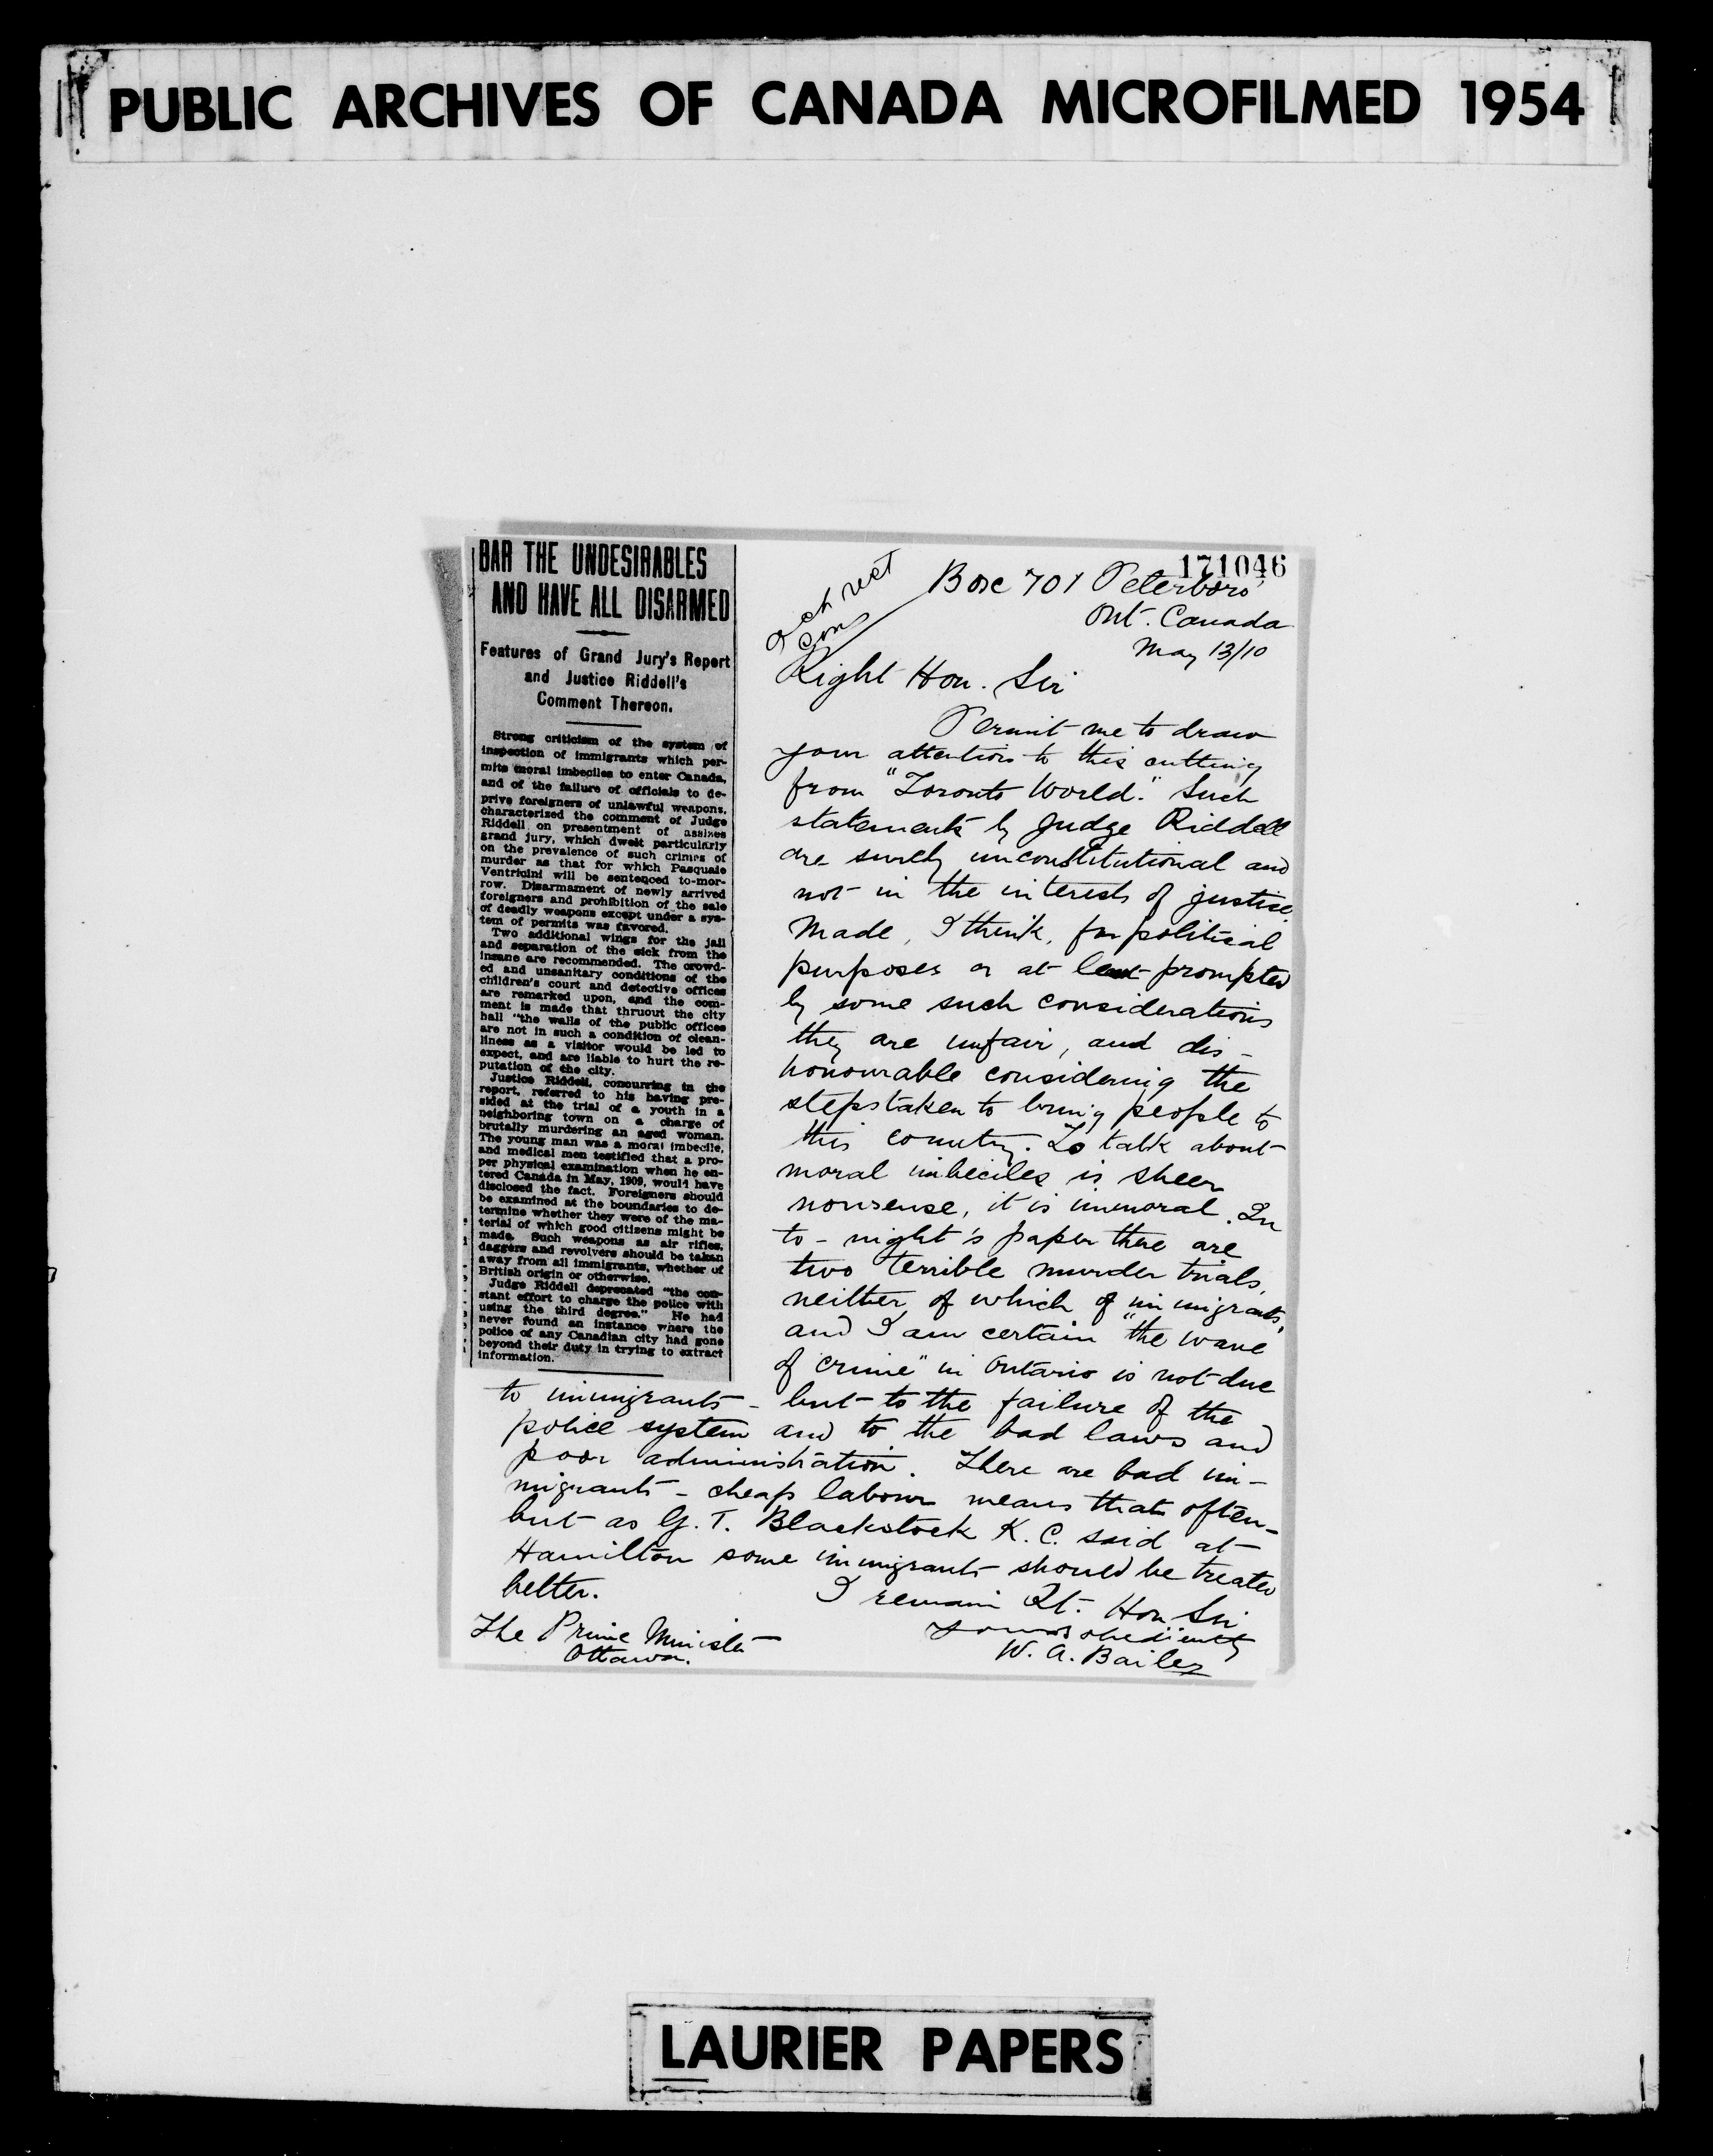 PUBLIC ARCHIVES OF CANADA MICROFILMED 1954
BAR THE UNDESIRABLES
AND HAVE ALL DISARMED
Features of Grand Jury's Report
and Justice Riddell's
Comment Thereon.
Strong criticism of the system of
inspection of immigrants which per-
mits moral imbeciles to enter Canada,
and of the failure of officials to de-
prive foreigners of unlawful weapons,
characterized the comment of Judge
Riddell on presentment of assizes
grand jury, which dwelt particularly
on the prevalence of such crimes of
murder as that for which Pasquale
Ventricini will be sentenced to-mor-
row. Disarmament of newly arrived
foreigners and prohibition of the sale
of deadly weapons except under a sys-
tem of permits was favored.
Two additional wings for the jail
and separation of the sick from the
insane are recommended. The crowd-
ed and unsanitary conditions of the
children's court and detective offices
are remarked upon, and the com-
ment is made that thruout the city
hall "the walls of the public offices
are not in such a condition of clean-
liness as a visitor would be led to
expect, and are liable to hurt the re-
putation of the city.
Justice Riddell, concurring in the
report, referred to his having pre-
sided at the trial of a youth in a
neighboring town on a charge of
brutally murdering an aged woman.
The young man was a moral imbecile,
and medical men testified that a pro-
per physical examination when he en-
tered Canada in May, 1909, would have
disclosed the fact. Foreigners should
be examined at the boundaries to de-
termine whether they were of the ma-
terial of which good citizens might be
made. Such weapons as air rifles,
daggers and revolvers should be taken
away from all immigrants, whether of
British origin or otherwise.
Judge Riddell deprecated "the con-
stant effort to charge the police with
using the third degree." He had
never found an instance where the
police of any Canadian city had gone
beyond their duty in trying to extract
information.
171046
Box 701 Peterboro'
Ont. Canada
May 13/10
Right Hon. Sir
Permit me to draw
your attention to this cutting
from "Toronto World." Such
statements by Judge Riddell
are surely unconstitutional and
not in the interests of justice.
Made, I think, for political
purposes or at least prompted
by some such considerations
they are unfair, and dis-
honourable considering the
steps taken to bring people to
this country. To talk about
moral imbeciles is sheer
nonsense, it is immoral. In
to-night's paper there are
two terrible murder trials,
neither of which of immigrants,
and I am certain "the wave
of crime" in Ontario is not due
to immigrants - but to the failure of the
police system and to the bad laws and
poor administration. There are bad im-
migrants - cheap labour means that often -
but as G. T. Blackstock K. C. said at
Hamilton some immigrants should be treated
better.
I remain Rt. Hon Sir
Yours obediently
W. A. Bailey
The Prime Minister
Ottawa.
LAURIER PAPERS